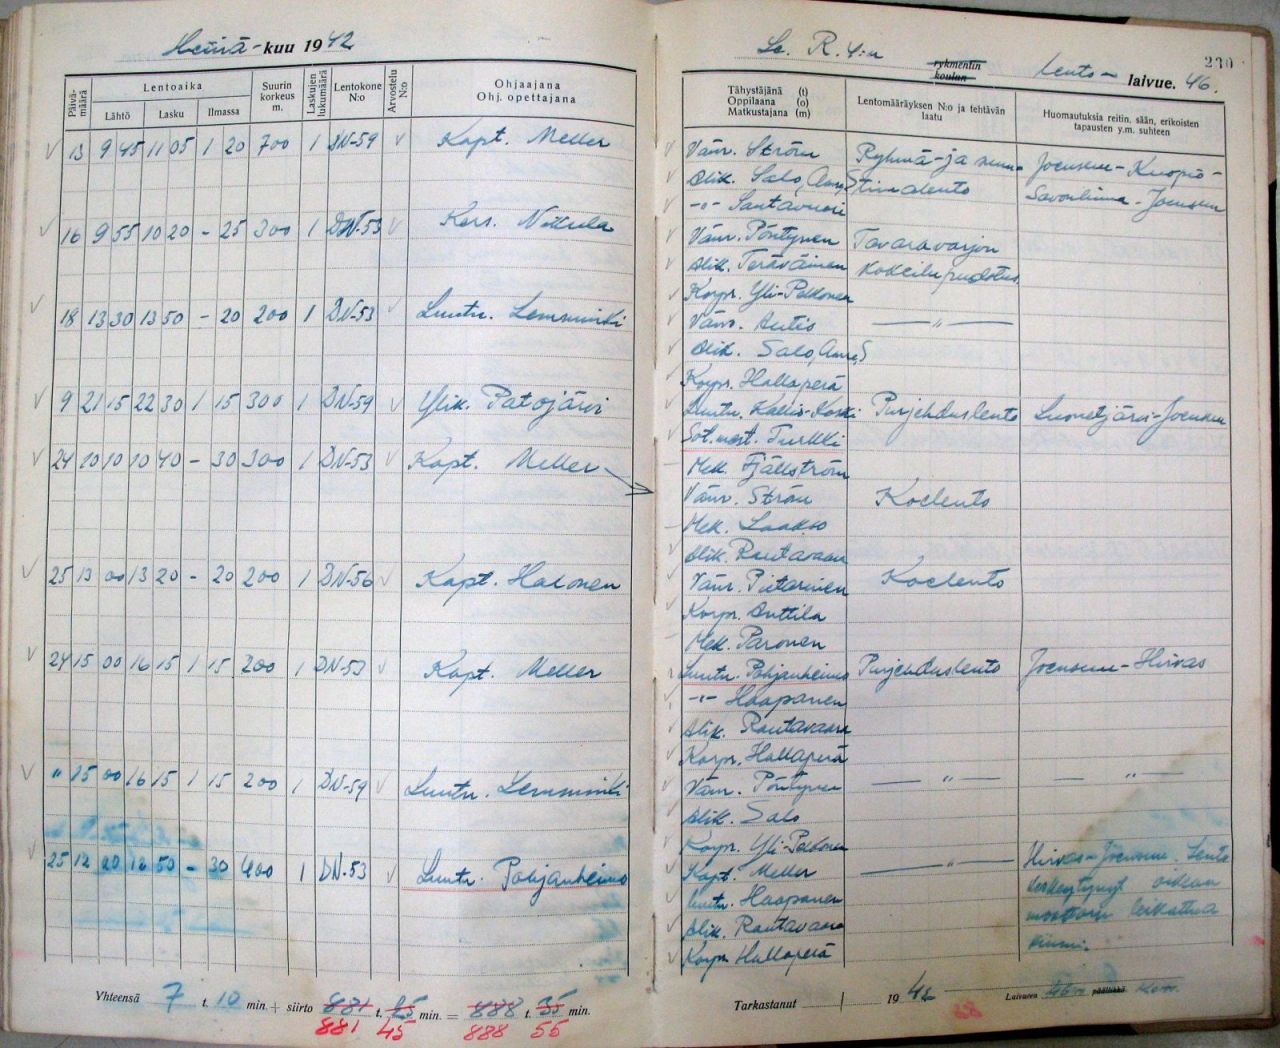 Heinä-kuu 1942
Päivä-määrä
Lentoaika
Lähtö
Lasku
Ilmassa
Suurin korkeus m.
Laskujen lukumäärä
Lentokone N:o
Arvostelu N:o
Ohjaajana
Ohj. opettajana
13 9 45 11 05 1 20 700 1 DN-59 Kapt. Meller
16 9 55 10 20 - 25 300 1 DN-53 Kers.
18 13 30 13 50 - 20 200 1 DN-53 Luutn. Lemminki
9 21 15 22 30 1 15 300 1 DN-59 Ylik. Patojärvi
24 10 10 10 40 - 30 300 1 DN-53 Kapt. Meller
25 13 00 13 20 - 20 200 1 DN-56 Kapt. Halonen
24 15 00 16 15 1 15 200 1 DN-53 Kapt. Meller
" 15 00 16 15 1 15 200 1 DN-59 Luutn. Lemminki
25 12 20 12 50 - 30 400 1 DN-53 Luutn. Pohjanheimo
Yhteensä 7 t. 10 min. + siirto 881 t. min. = 888 t. 35 min.
881 45 888 55
Le. R. 4:n
rykmentin
koulun
Lento- laivue. 46.
230
Tähystäjänä (t)
Oppilaana (o)
Matkustajana (m)
Lentomääräyksen N:o ja tehtävän laatu
Huomautuksia reitin, sään, erikoisten tapausten y.m. suhteen
Vänr. Ström Ryhmä- ja Joensuu-Kuopio-
Alik. Salo, Savonlinna-Joensuu
-"- Santavuori
Vänr. Pöntynen Tavaravarjon
Alik. Teräväinen kokeilupudotus
Korpr. Yli-Pekkonen
Vänr. Autio — " —
Alik. Salo,
Korpr. Hallaperä
Luutn. Kallio-Koski Purjehduslento Luonetjärvi-Joensuu
Sot.mest. Turkki
Mek. Fjällström
Vänr. Ström Koelento
Mek. Laakso
Alik. Rautavaara
Vänr. Pietarinen Koelento
Korpr. Anttila
Mek. Paronen
Luutn. Pohjanheimo Purjehduslento Joensuu-Hirvas
-"- Haapanen
Alik. Rautavaara
Korpr. Hallaperä
Vänr. Pöntynen — " — — " —
Alik. Salo
Korpr. Yli-Pekkonen
Kapt. Meller — " — Hirvas-Joensuu. Lento
Luutn. Haapanen keskeytynyt oikean
Alik. Rautavaara moottorin leikattua
Korpr. Hallaperä kiinni.
Tarkastanut 1942 Laivueen päällikkö